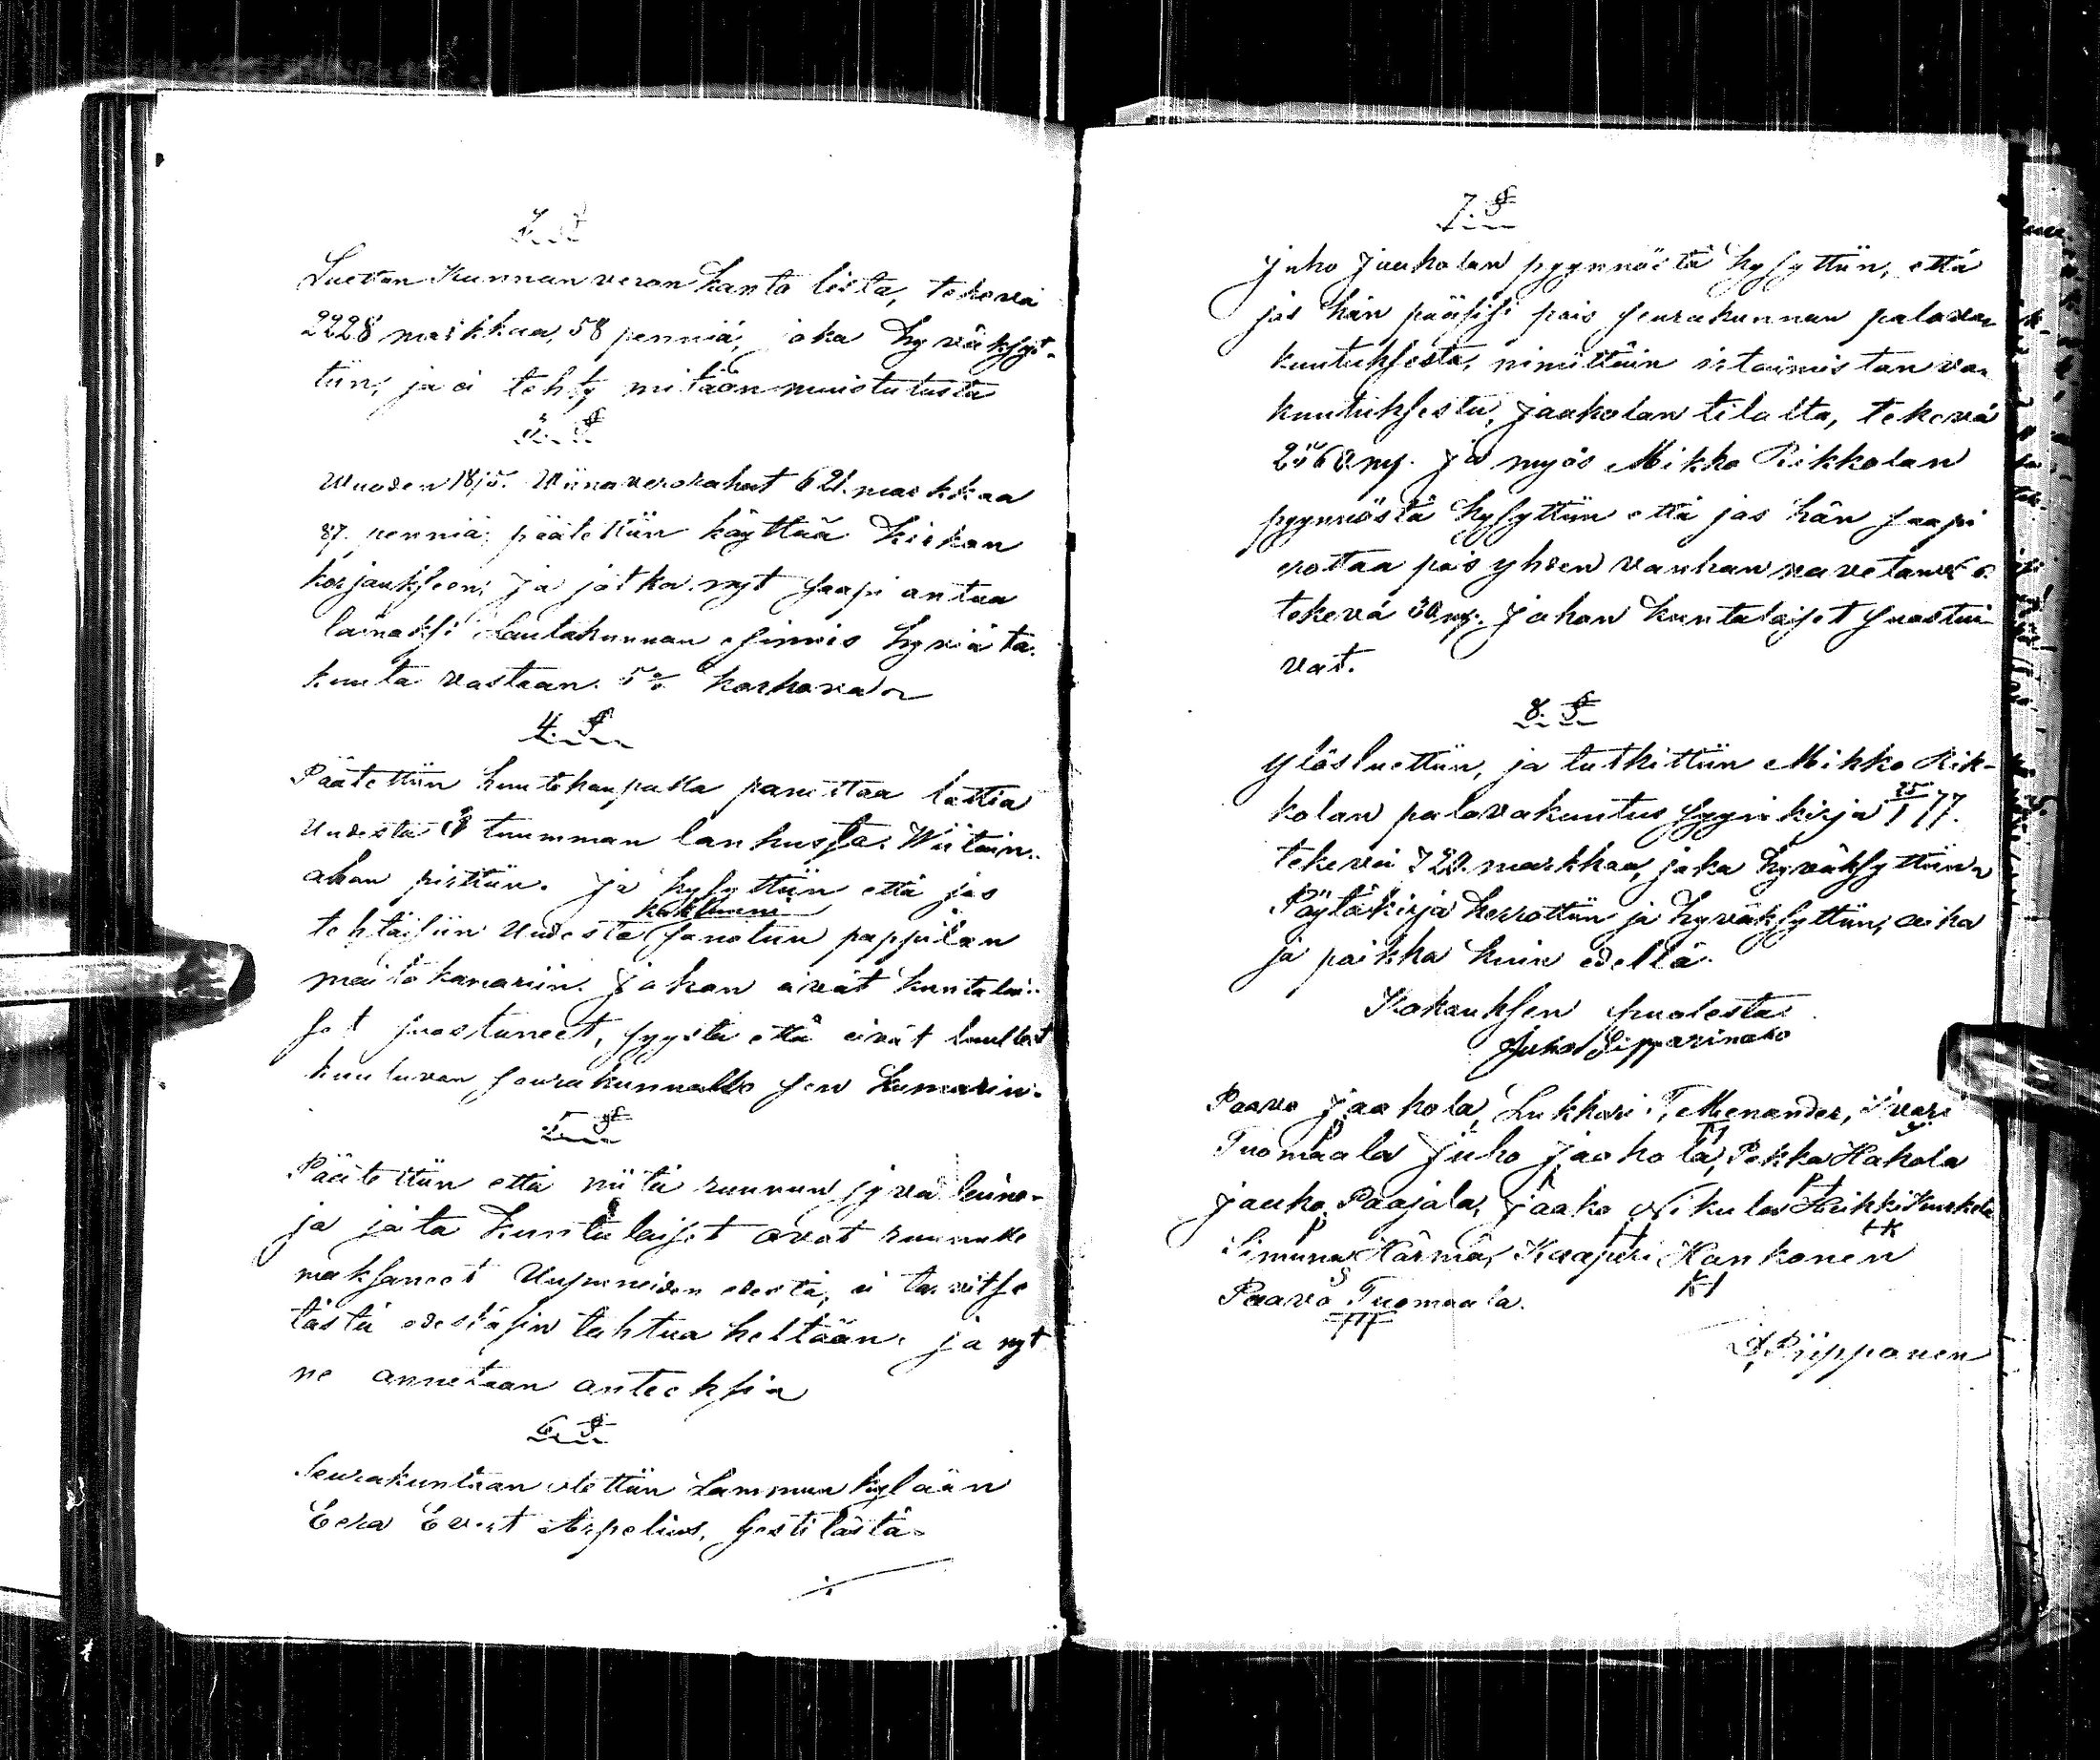 2. §
Luettin Kunnan veron kanto lista, tekevä
2228 markkaa, 58 penniä, joka hyväksyt-
tiin, ja ei tehty mitään muistutusta
3. §
Wuoden 1875. Wiinaverorahat 621. markkaa
87. penniä, päätettiin käyttää kirkon
korjaukseen, ja jotka nyt saapi antaa
lainaksi Lautakunnan esimies hyviä ta-
kuuta vastaan. 5 % korkova
4. §
Päätettiin huutokaupalla panettaa lattia
Uudesta tuumman lankusta. Wiitain-
ahon pirttiin. ja kysyttiin että jos
kaklunni
tehtäisiin Uudesta sanotun pappilan
maito kamariin. Johon eivät kuntalai-
set suostuneet, syystä että eivät luulleet
kuuluvan seurakunnalle sen kamarin.
5. §
Päätettiin että niitä ruunun jyvä laino-
ja joita kuntalaiset ovat ruunulle
maksaneet Uupuneiden edestä, ei tarvitse
tästä edeskäsin tahtua heltään. ja nyt
ne annetaan anteeksia
6. §
Seurakuntaan otettiin Lammun kylään
Eera Evert Arpelius, Sestilästä
7. §
Juho Jaakolan pyynnöstä kysyttiin, että
jos hän pääsisi pois seurakunnan palova-
kuutuksesta, nimittäin irtaimistan va-
kuutuksesta, Jaakolan tilalta, tekevä
2560 my. Ja myös Mikko Rikkolan
pyynnöstä kysyttiin että jos hän saapi
erottaa pois yhden vanhan navetan
tekevä 30 my. Johon kuntalaiset suostui-
vat.
8. §
Ylösluettiin, ja tutkittiin Mikko Rik-
kolan palovakuutus syynikirja 25/1 77.
tekevä 720. markkaa, joka hyväksyttiin
Pöytäkirja kerrottiin ja hyväksyttiin, aika
ja paikka kuin edellä.
Kokouksen puolesta
Juho Lipparinaho
Paavo Jaakola, Lukkari T. Menander, Iivari
Tuomaala Juho Jaakola, Pekka Hakola
Jaako Paajala, Jaako Nikula Heikki Kurkela
Simuna Härmä, Kaaperi Kankonen
Paavo Tuomaala.
Piipponen